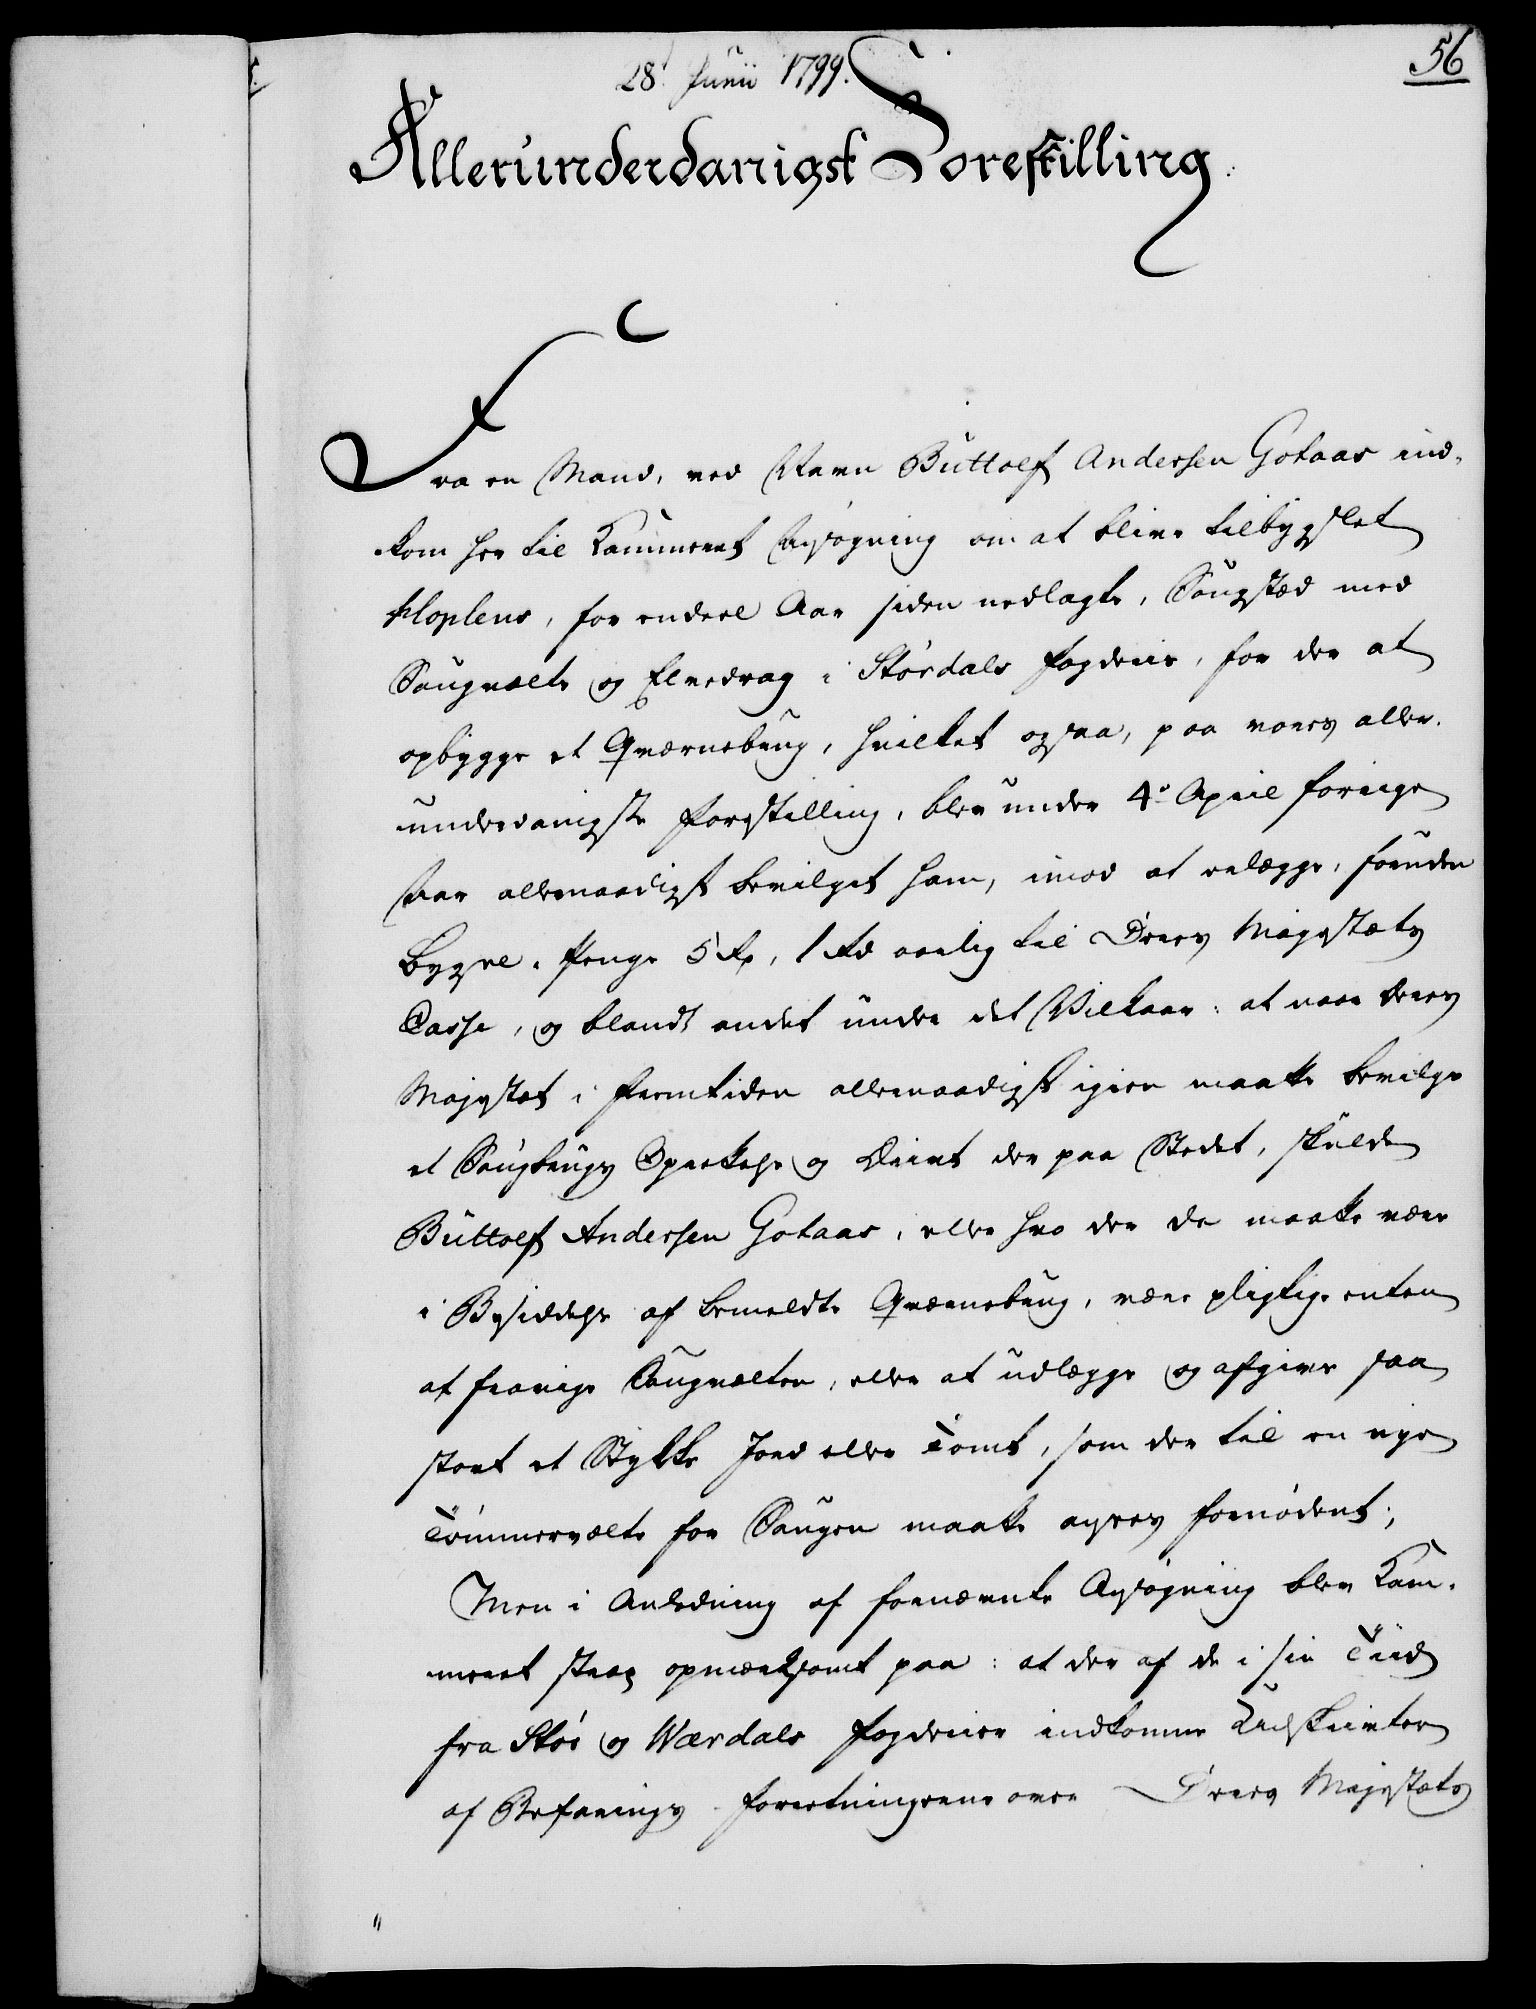 28 Junii 1799.
56
Allerunderdanigst Forestilling.
Fra en Mand, ved Navn Büttolf Andersen Gotaas ind-
kom her til Kammeret Ansøgning om at blive tilbygslet
Hoplens, for endeel Aar siden nedlagte, Saugstæd med
Saugvælte og Elvedrag i Størdals Fogderie, for der at
opbygge et Qværnebrug, hvilket ogsaa, paa vores aller-
underdanigste Forestilling, blev under 4de April forrige
Aar allernaadigst bevilget ham, imod at erlægge, foruden
Bygsel-Penge 5 Rd, 1 Rd aarlig til Deres Majestæts
Casse, og blandt andet under det Vilkaar: at naar Deres
Majestæt i Fremtiden allernaadigst igien maatte bevilge
et Saugbrugs Oprettelse og Drivt der paa Stedet, skulde
Büttolf Andersen Gotaas, eller hvo der da maatte være
i Besiddelse af bemeldte Qværnebrug, være pligtig enten
at fravige Saugvælten, eller at udlægge og afgive saa
stort et Stykke Jord eller Tomt, som der til en nye
Tømmervælte for Saugen maatte agtes fornødent;
Men i Anledning af fornævnte Ansøgning blev Kam-
meret strax opmærksomt paa: at der af de i sin Tiid
fra Stør og Værdals Fogderier indkomne Udskrivter
af Befarings-Forretningerne over Deres Majestæts